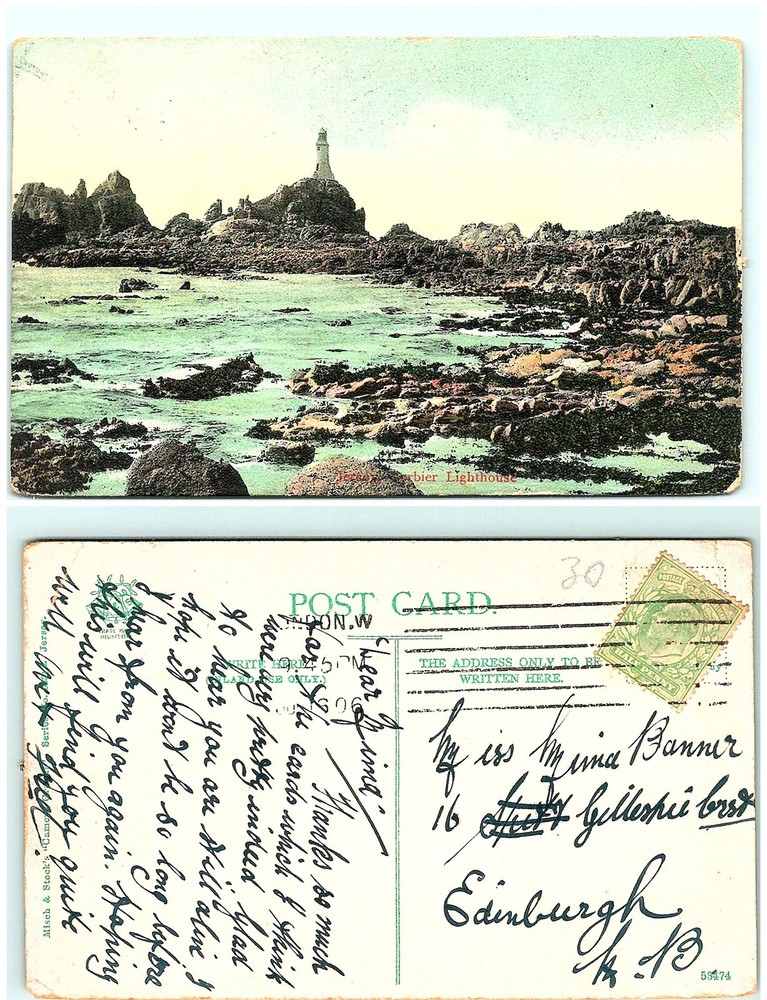 Jersey Corbier Lighthouse
POST CARD.
30
POSTAGE
NDON.W
9.45 PM
06
WRITE HERE
(INLAND USE ONLY.)
THE ADDRESS ONLY TO BE
WRITTEN HERE.
Misch & Stock's "Cameo" Series
Jersey
TRADE MARK
Dear Mina
Thanks so much
for the cards which I think
very pretty indeed Glad
to hear you are still alive &
hope it won't be so long before
I hear from you again. Hoping
this will find you quite
well
Miss Mina Banner
16 Gillespie Crest
Edinburgh
N.B
53474